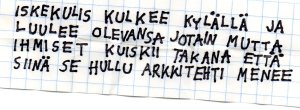 ISKEKULIS KULKEE KYLÄLLÄ JA
LUULEE OLEVANSA JOTAIN MUTTA
IHMISET KUISKII TAKANA ETTÄ
SIINÄ SE HULLU ARKKITEHTI MENEE